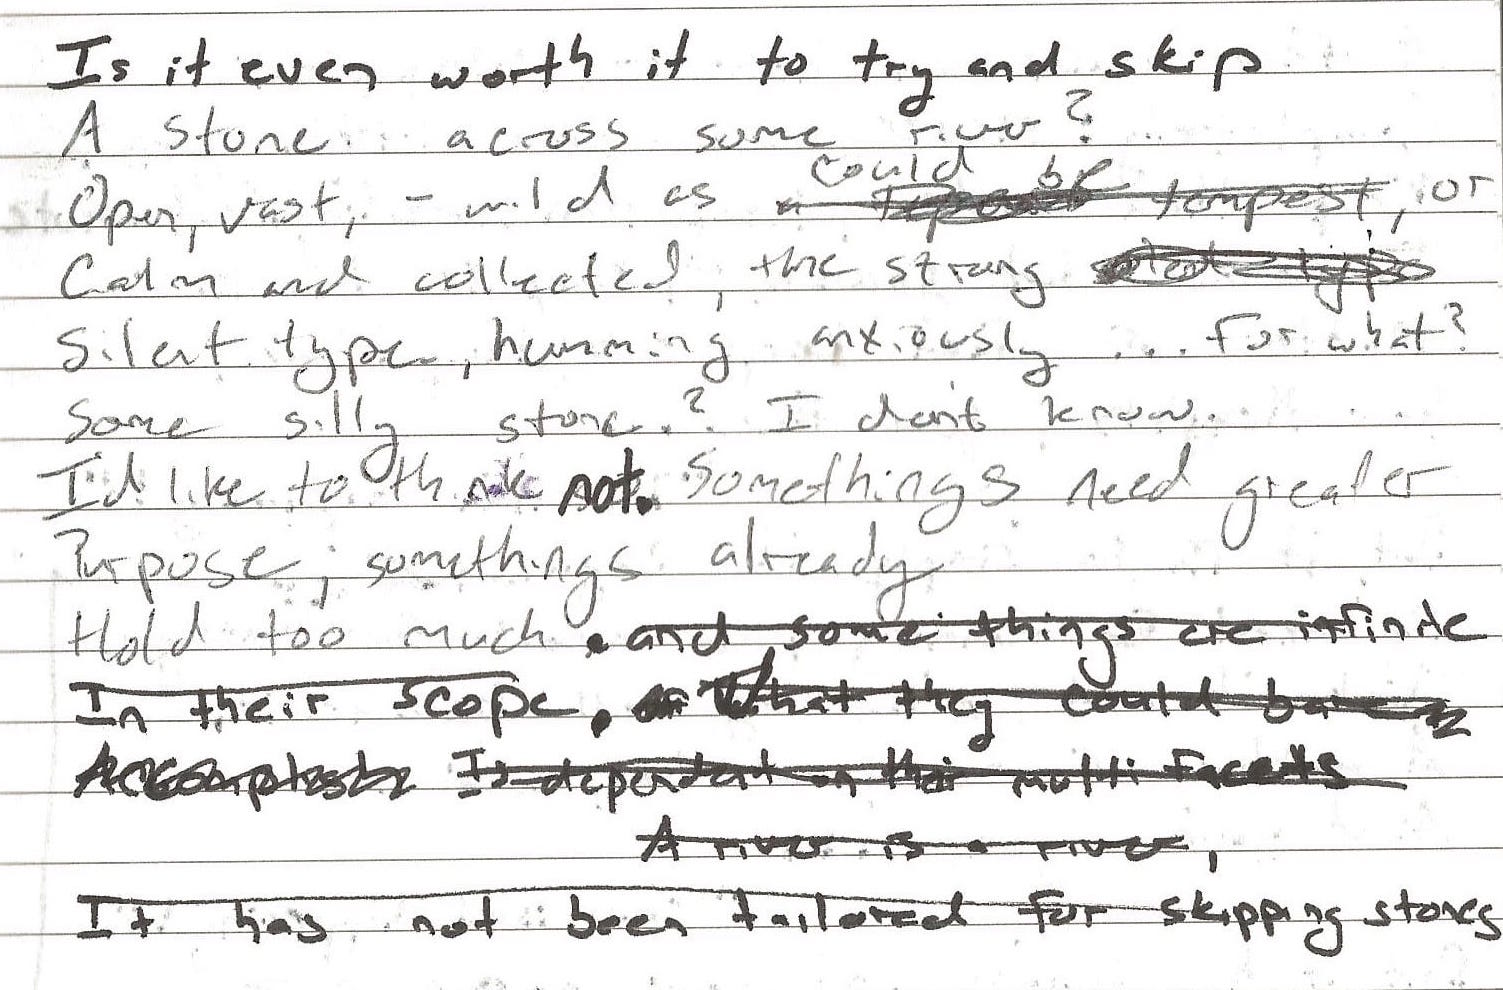 Is it even worth it to try and skip
A stone across some river?
could be
Open, vast, - mild as a tempest, or
Calm and collected, the strong
Silent type, humming anxiously ... For what?
Some silly stone.? I don't know.
I'd like to think not. Somethings need greater
Purpose, somethings already
Hold too much. and some things are infinite
In their scope. What they could
Accomplish Is dependent on their multi facets
A river is a river,
It has not been tailored for skipping stones